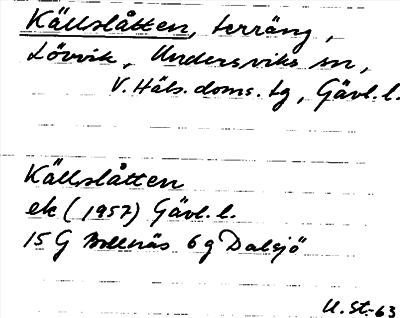 Källslåtten, terräng,
Lövvik, Undersviks sn,
V. Häls. doms. tg, Gävl. l.
Källslåtten
ek (1957) Gävl. l.
15 G Bollnäs 6 g Dalsjö
U. St.-63